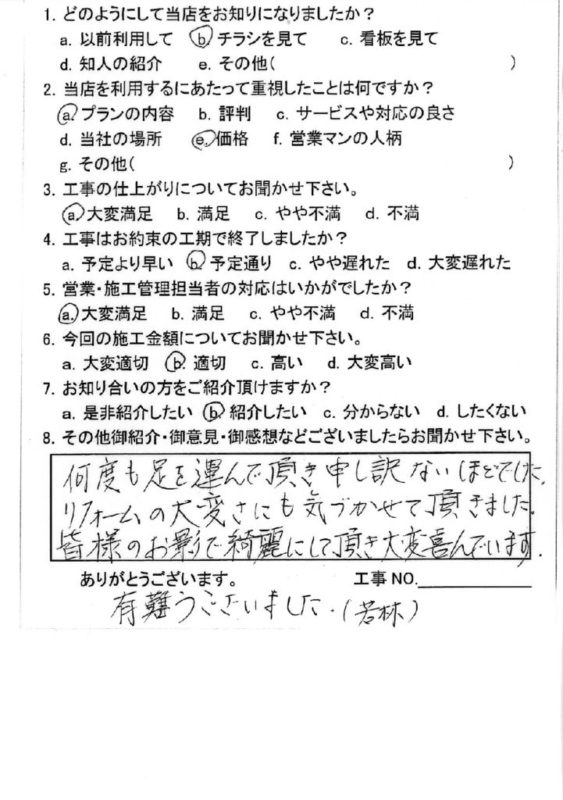 1. どのようにして当店をお知りになりましたか？
a. 以前利用して b. チラシを見て c. 看板を見て
d. 知人の紹介 e. その他( )
2. 当店を利用するにあたって重視したことは何ですか？
a. プランの内容 b. 評判 c. サービスや対応の良さ
d. 当社の場所 e. 価格 f. 営業マンの人柄
g. その他( )
3. 工事の仕上がりについてお聞かせ下さい。
a. 大変満足 b. 満足 c. やや不満 d. 不満
4. 工事はお約束の工期で終了しましたか？
a. 予定より早い b. 予定通り c. やや遅れた d. 大変遅れた
5. 営業・施工管理担当者の対応はいかがでしたか？
a. 大変満足 b. 満足 c. やや不満 d. 不満
6. 今回の施工金額についてお聞かせ下さい。
a. 大変適切 b. 適切 c. 高い d. 大変高い
7. お知り合いの方をご紹介頂けますか？
a. 是非紹介したい b. 紹介したい c. 分からない d. したくない
8. その他御紹介・御意見・御感想などございましたらお聞かせ下さい。
何度も足を運んで頂き申し訳ないほどでした。
リフォームの大変さにも気づかせて頂きました。
皆様のお影で綺麗にして頂き大変喜んでいます。
ありがとうございます。 工事 NO.
有難うございました.(若林)